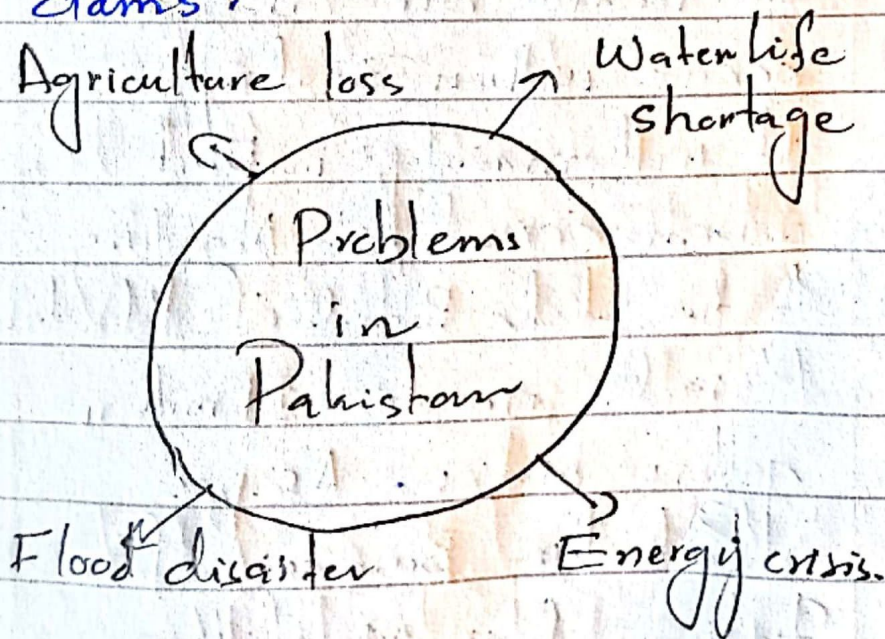 dams.
Agriculture loss
Water life
shortage
Problems
in
Pakistan
Flood disaster
Energy crisis.